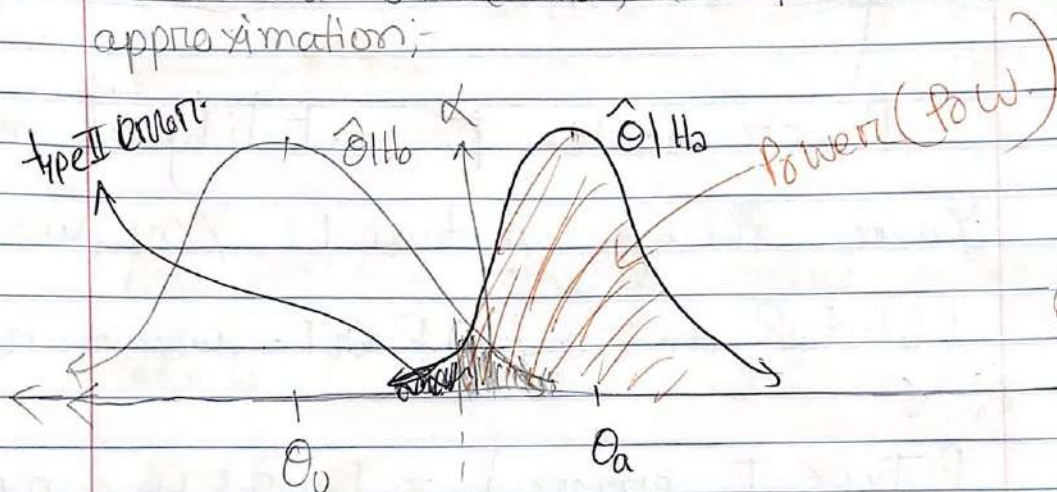 approximation;-
type II error.
α
θ̂|H₀
θ̂|Ha
Power (Pow.)
θ₀
θa